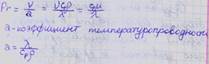 Pr = ν/a = νcρ/λ = cμ/λ
a - коэффициент температуропроводности
a = λ/cρ